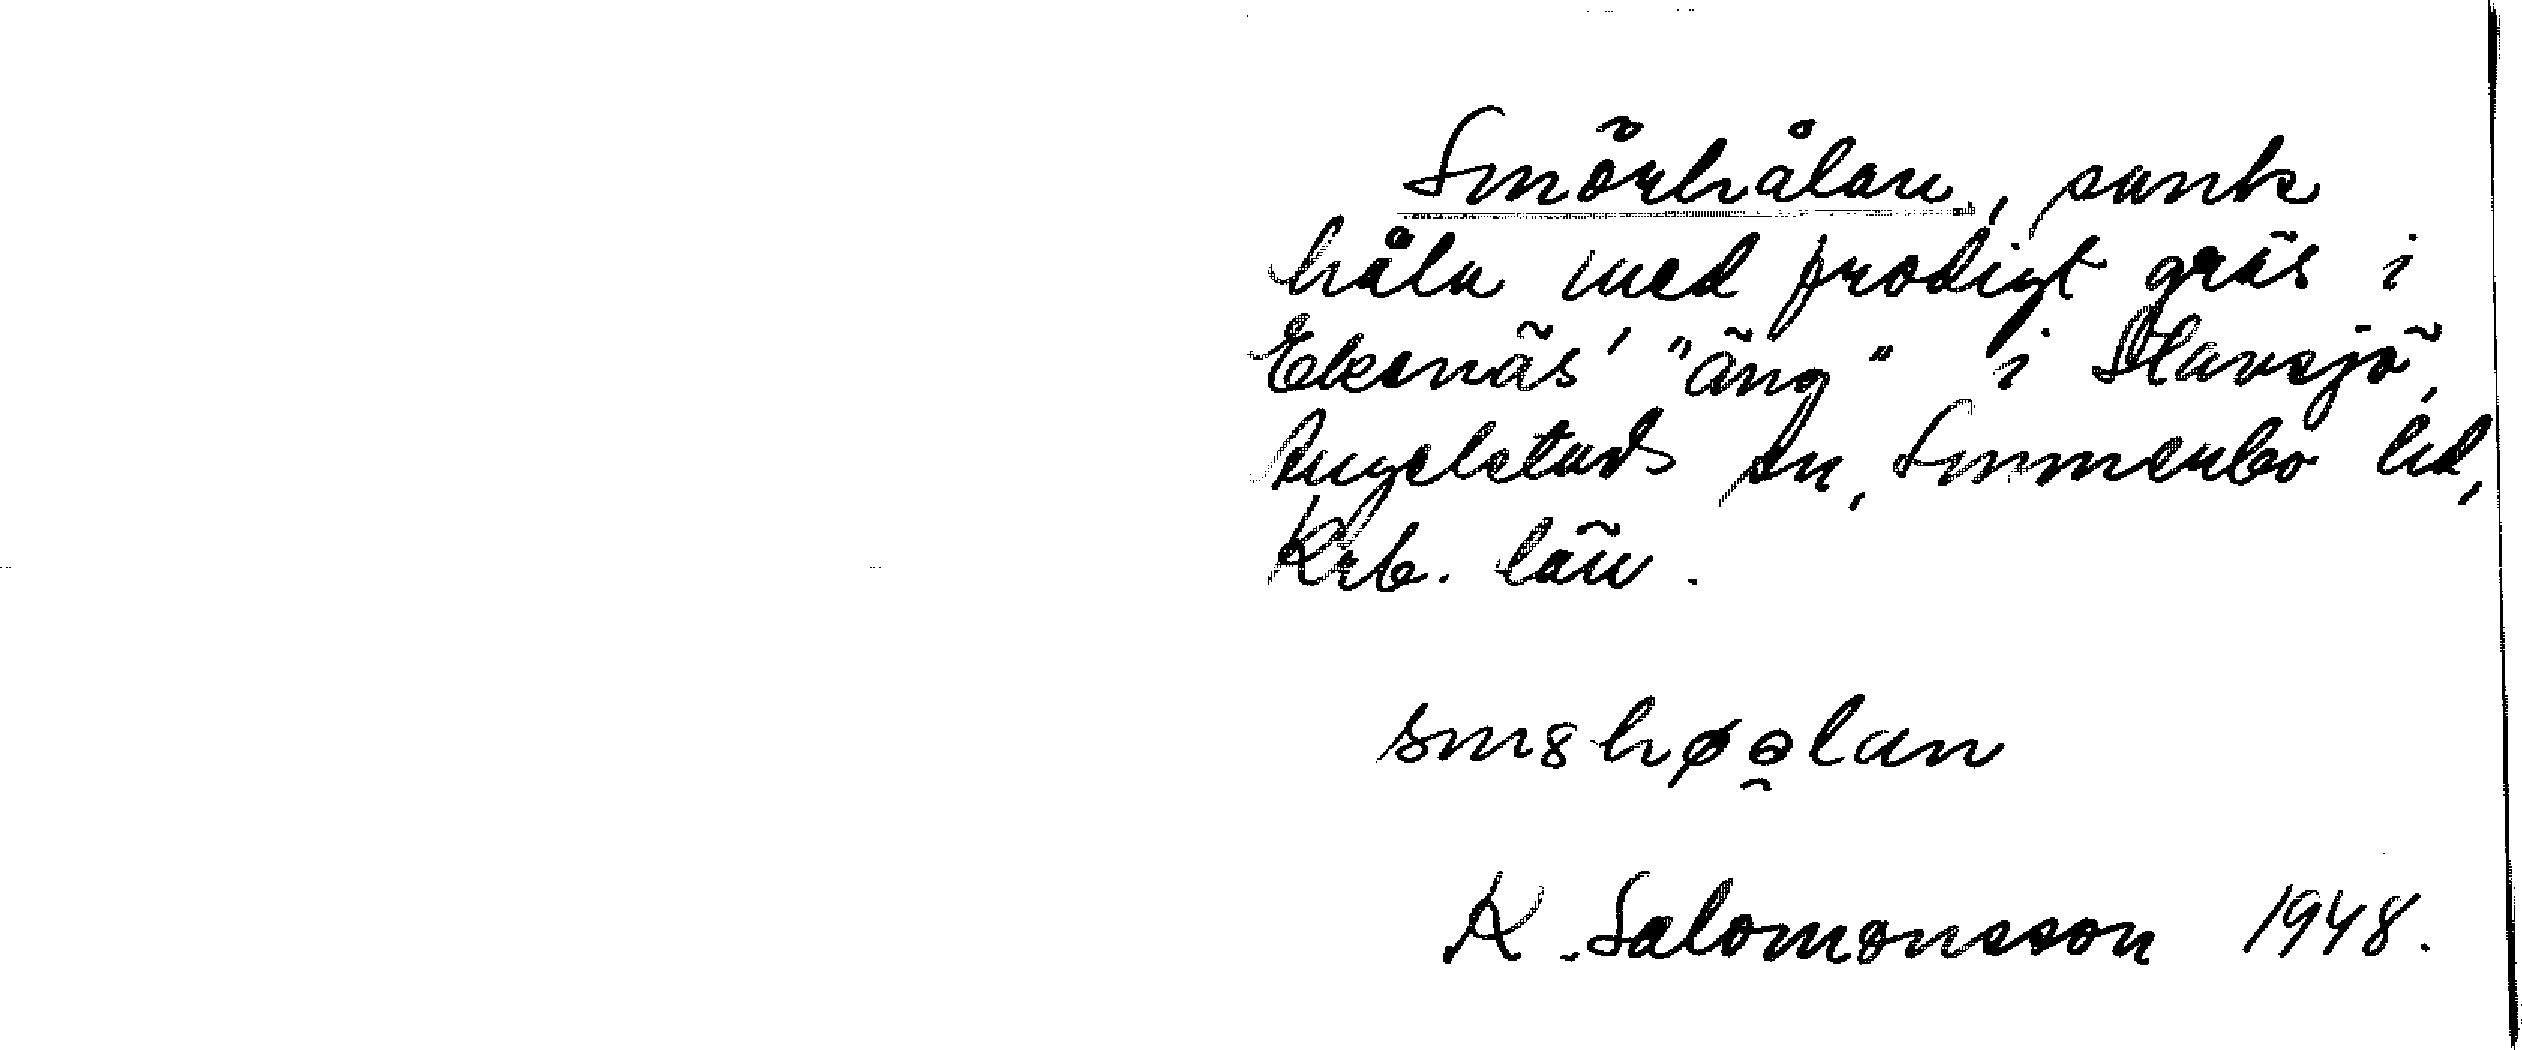 Smörhålan, sank
håla med frodigt gräs i
Ekenäs' "äng" i Slavsjö,
Angelstads sn, Sunnerbo hd,
Krb. län.
sm8høəlan
K. Salomonsson 1948.